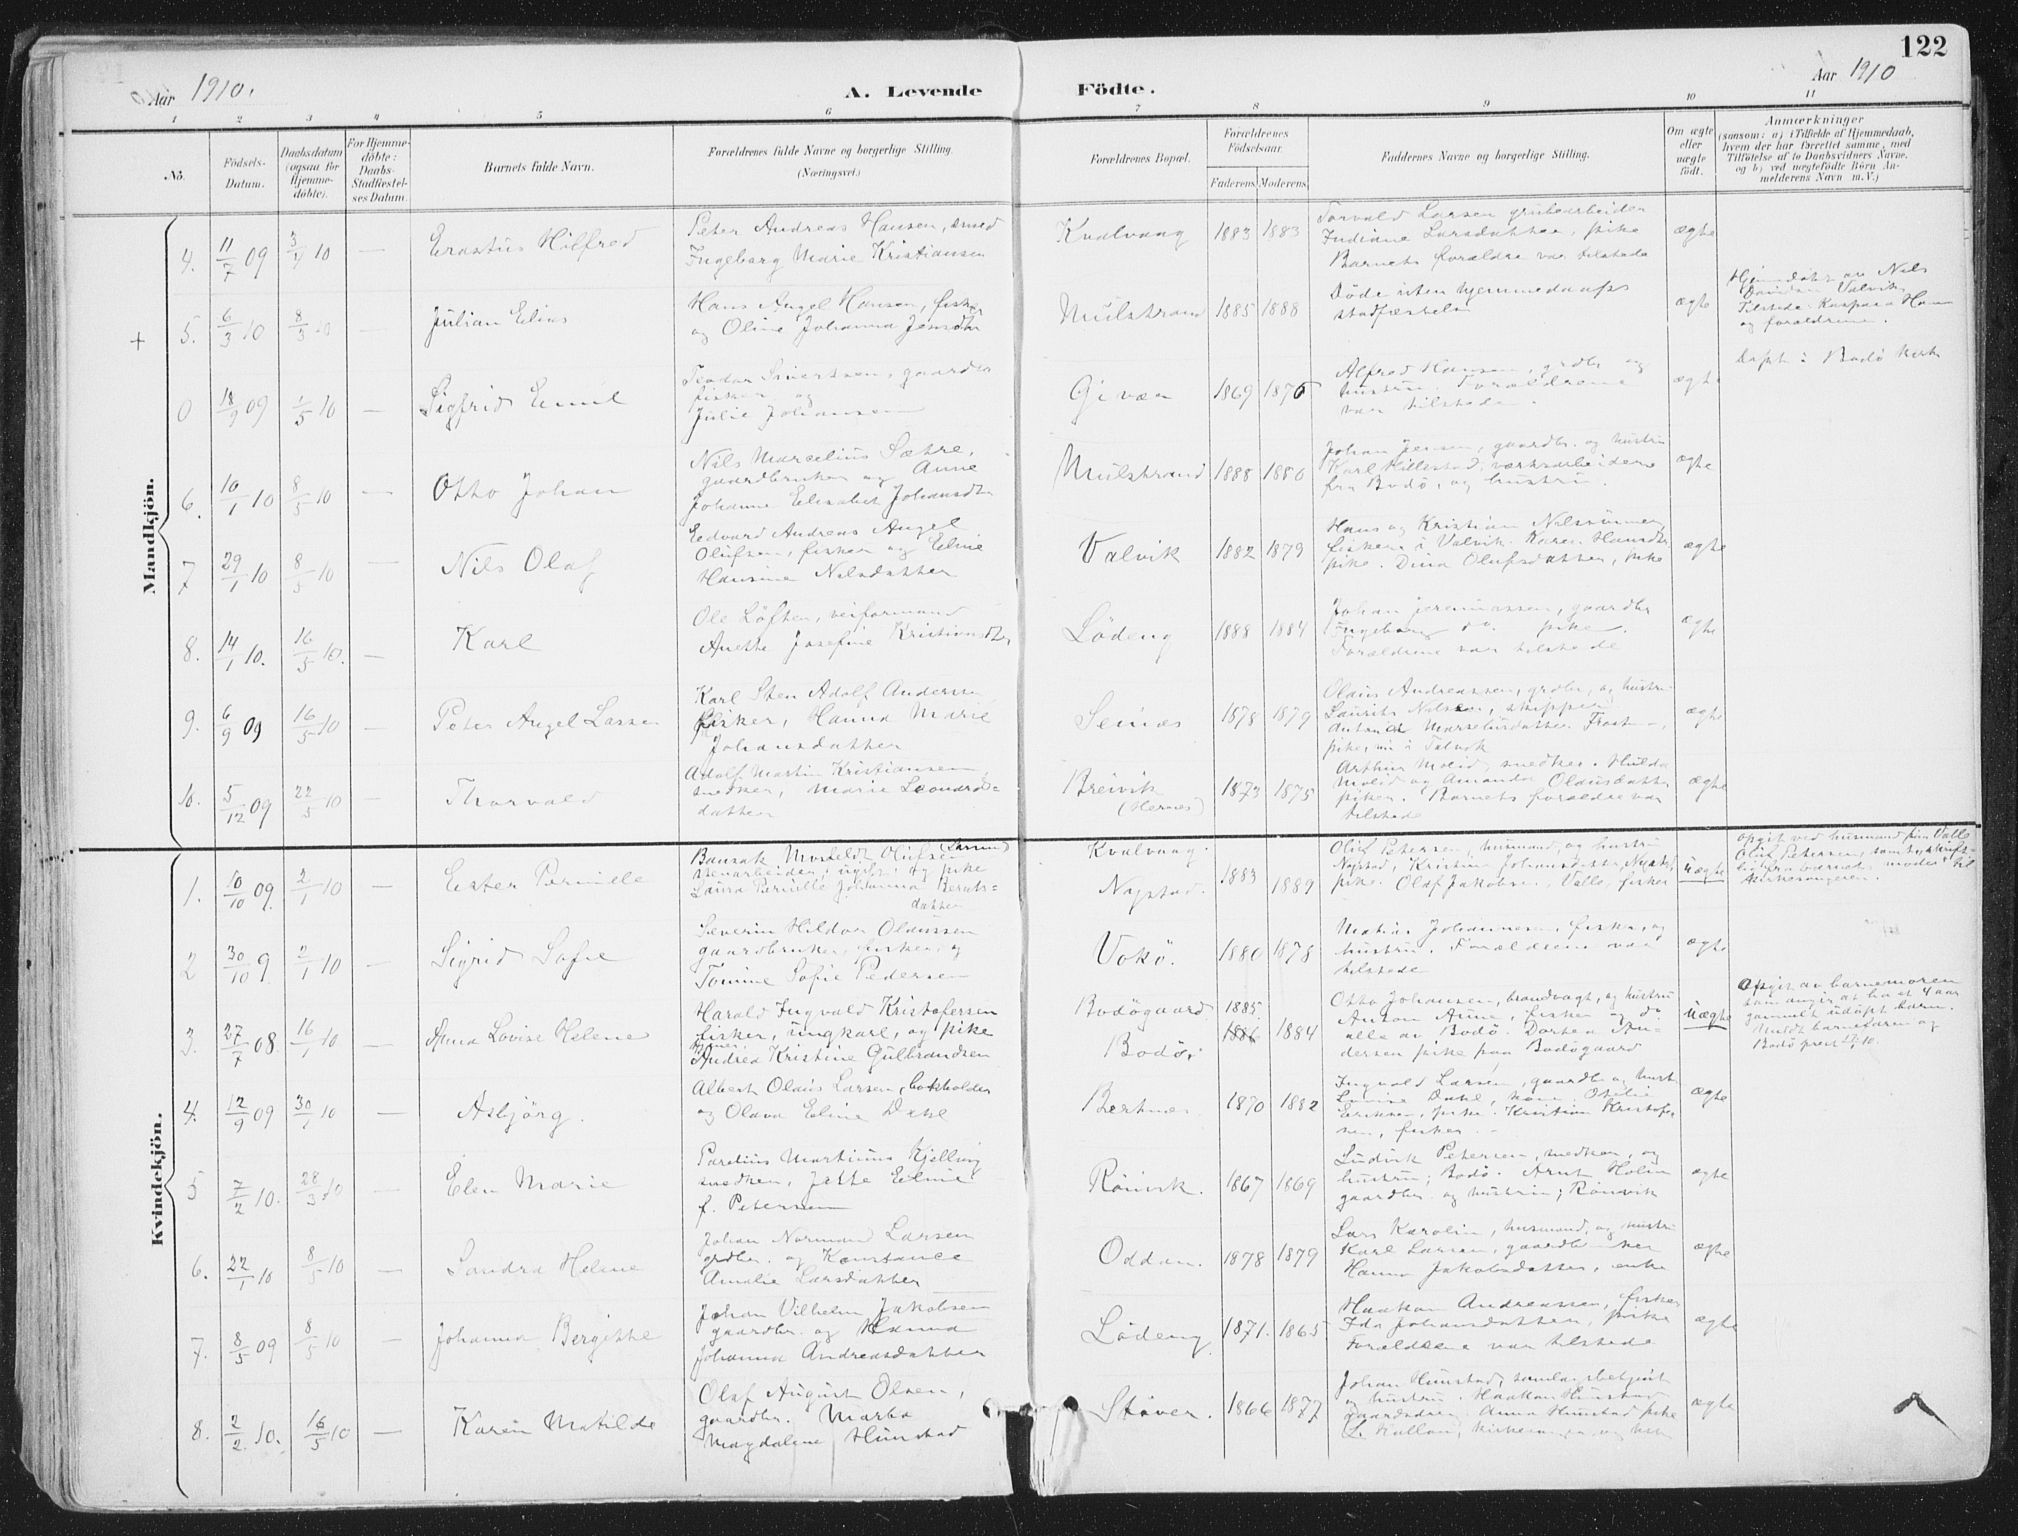 122
Aar 1910.
A. Levende
Födte.
Aar 1910
1 2 3 4 5 6 7 8 9 10 11
No.
Födsels-
Datum.
Daabsdatum
(ogsaa for
Hjemme-
döbte).
For Hjemme-
döbte:
Daabs-
Stadfæstel-
ses Datum.
Barnets fulde Navn.
Forældrenes fulde Navne og borgerlige Stilling.
(Næringsvei.)
Forældrenes Bopæl.
Forældrenes
Födselsaar.
Faderens. Moderens.
Faddernes Navne og borgerlige Stilling.
Om ægte
eller
uægte
födt.
Anmærkninger
(saasom: a) i Tilfælde af Hjemmedaab,
hvem der har forrettet samme, med
Tilföielse af to Daabsvidners Navne,
og b) ved uægtefödte Börn An-
melderens Navn m. V.)
Mandkjön.
4. 11/7 09 3/4 10 — Erastus Hilfred
Peter Andreas Hansen, smed
Ingeborg Marie Kristiansen
Kvalvaag 1883 1883
Torvald Larsen grubearbeider
Indiane Larsdatter, pike
Barnets forældre var tilstede
ægte
+ 5. 6/3 10 8/3 10 Julian Elias
Hans Angel Hansen, fisker
og Oline Johanna Jensdtr
Mulstrand 1885 1888
Døde uten hjemmedaaps
stadfæstelse
ægte
Hjemdøbt av Nils
Davidsen Valvik
Tilstede: Kaspara Hansen
og forældrene.
0 18/9 09 1/5 10 — Sigfrid Emil
Teodor Sivertsen, gaardbr
fisker og
Julie Johansen
Givær 1869 1876
Alfred Hansen, grdbr og
hustru. Forældrene
var tilstede.
ægte
Døpt i Bodø kirke
6. 10/1 10 8/5 10 — Otto Johan
Nils Marcelius Sætre,
gaardbruker og Anne
Johanne Elisabet Johansdtr
Mulstrand 1888 1880
Johan Jensen, gaardbr. og hustru
Karl Hillestad, verksarbeidere
fra Bodø, og hustru.
ægte
7 29/1 10 8/5 10 — Nils Olaf
Edvard Andreas Angel
Olufsen, fisker og Eline
Hansine Nilsdatter
Valvik 1882 1879
Hans og Kristian Nilssønner
fiskere i Valvik. Karen Hansdtr
pike. Dina Olufsdatter, pike
ægte
8. 14/1 10. 16/5 10. — Karl
Ole Løften, veiformand
Anette Josefine Kristiansdtr
Lødeng 1888 1884
Johan Jeremiassen, gaardbr
Ingeborg do. pike.
Forældrene var tilstede
ægte
9. 6/9 09 16/5 10 — Peter Angel Lassen
Karl Sten Adolf Andersen
fisker, Hanna Marie
Johansdatter
Senæs 1878 1879
Olaus Andreassen, grdbr, og hustru
Laurits Nilsen, skipper
pike,
ægte
10. 5/12 09 22/5 10 — Thorvald
Adolf Martin Kristiansen
snedker, Marie Leonards-
datter
Breivik
(Hernes)
1873 1875
Arthur Molid snedker. Hulda
Molid og Amanda Olausdatter
piker. Barnets forældre var
tilstede
ægte
Kvindekjön.
1. 10/10 09. 2/1 10 — Ester Pernille
stenarbeider, og pike
Laura Pernille Johanna Bernts-
datter
Kvalvaag.
Nystad.
1883 1889
Oluf Petersen, husmand, og hustru
Nystad, Kristine Johansdatter, Nystad,
pike. Olaf Jakobsen, Valle, fisker
uægte
Opgit ved husmand
Oluf Petersen,
kirkesangeren.
2 30/10 9. 2/1 10 — Sigrid Sofie
Severin Hildor Olaussen
gaardbruker, fisker, og
Tomine Sofie Pedersen
Vokø. 1880 1878
Johannesen, fisker, og
hustru. Forældrene var
tilstede
ægte
3. 27/7 08. 16/1 10 — Anna Lovise Helene
Harald Ingvald Kristofersen
fisker, ungkarl, og pike
Andrea Kristine Gulbrandsen
Bodøgaard
Bodø.
1885. 1886 1884
Otto Johansen, brandvagt, og hustru
Anton Aune, fisker og do
alle av Bodø. Dortea An-
dersen pike paa Bodøgaard
uægte
Opgit av barnemoren
som angir at ha et 4 aar
gammelt udøpt barn.
Meldt barnefaren og
Bodø prest
4. 12/9 09 30/1 10 — Asbjörg.
Albert Olaus Larsen, bokholder
og Olava Eline Dahl
Bertnes 1870 1882
Ingvald Larsen, gaardbr og hustru
Lovise Dahl, kone. Otelie
Eriksen, pike. Kristian Kristofer
sen, fisker.
ægte
5 7/2 10. 28/3 10 — Elen Marie
Parelius Martinus Kjelling
snedker, Jette Eline
f. Petersen
Rönvik. 1867 1869
Ludvik Petersen, snedker, og
hustru; Bodø. Arnt Holm
gaardbr. og hustru; Rönvik
ægte
6. 22/1 10 8/5 10 — Sandra Helene
Johan Normand Larsen
grdbr. og Konstance
Amalie Larsdatter
Oddan. 1878 1879
Lars Karolin, husmand, og hustru
Karl Larsen, gaardbruker
Hanna Jakobsdatter, enke
ægte
7. 8/5 09 8/5 10 — Johanna Bergitte
Johan Vilhelm Jakobsen
gaardbr. og Hanna
Johanna Andreasdatter
Lödeng 1871. 1865
Haakon Andreassen, fisker
Ida Johansdatter, pike
Forældrene var tilstede
ægte
8. 2/2. 10. 16/5 10 — Karen Matilde
Olaf August Olsen,
gaardbr. Marta
Magdalene Hunstad
Støver. 1866 1877
Johan Hunstad, samlagsbetjent
og hustru. Haakon Hunstad
Anna Hunstad pike
ægte